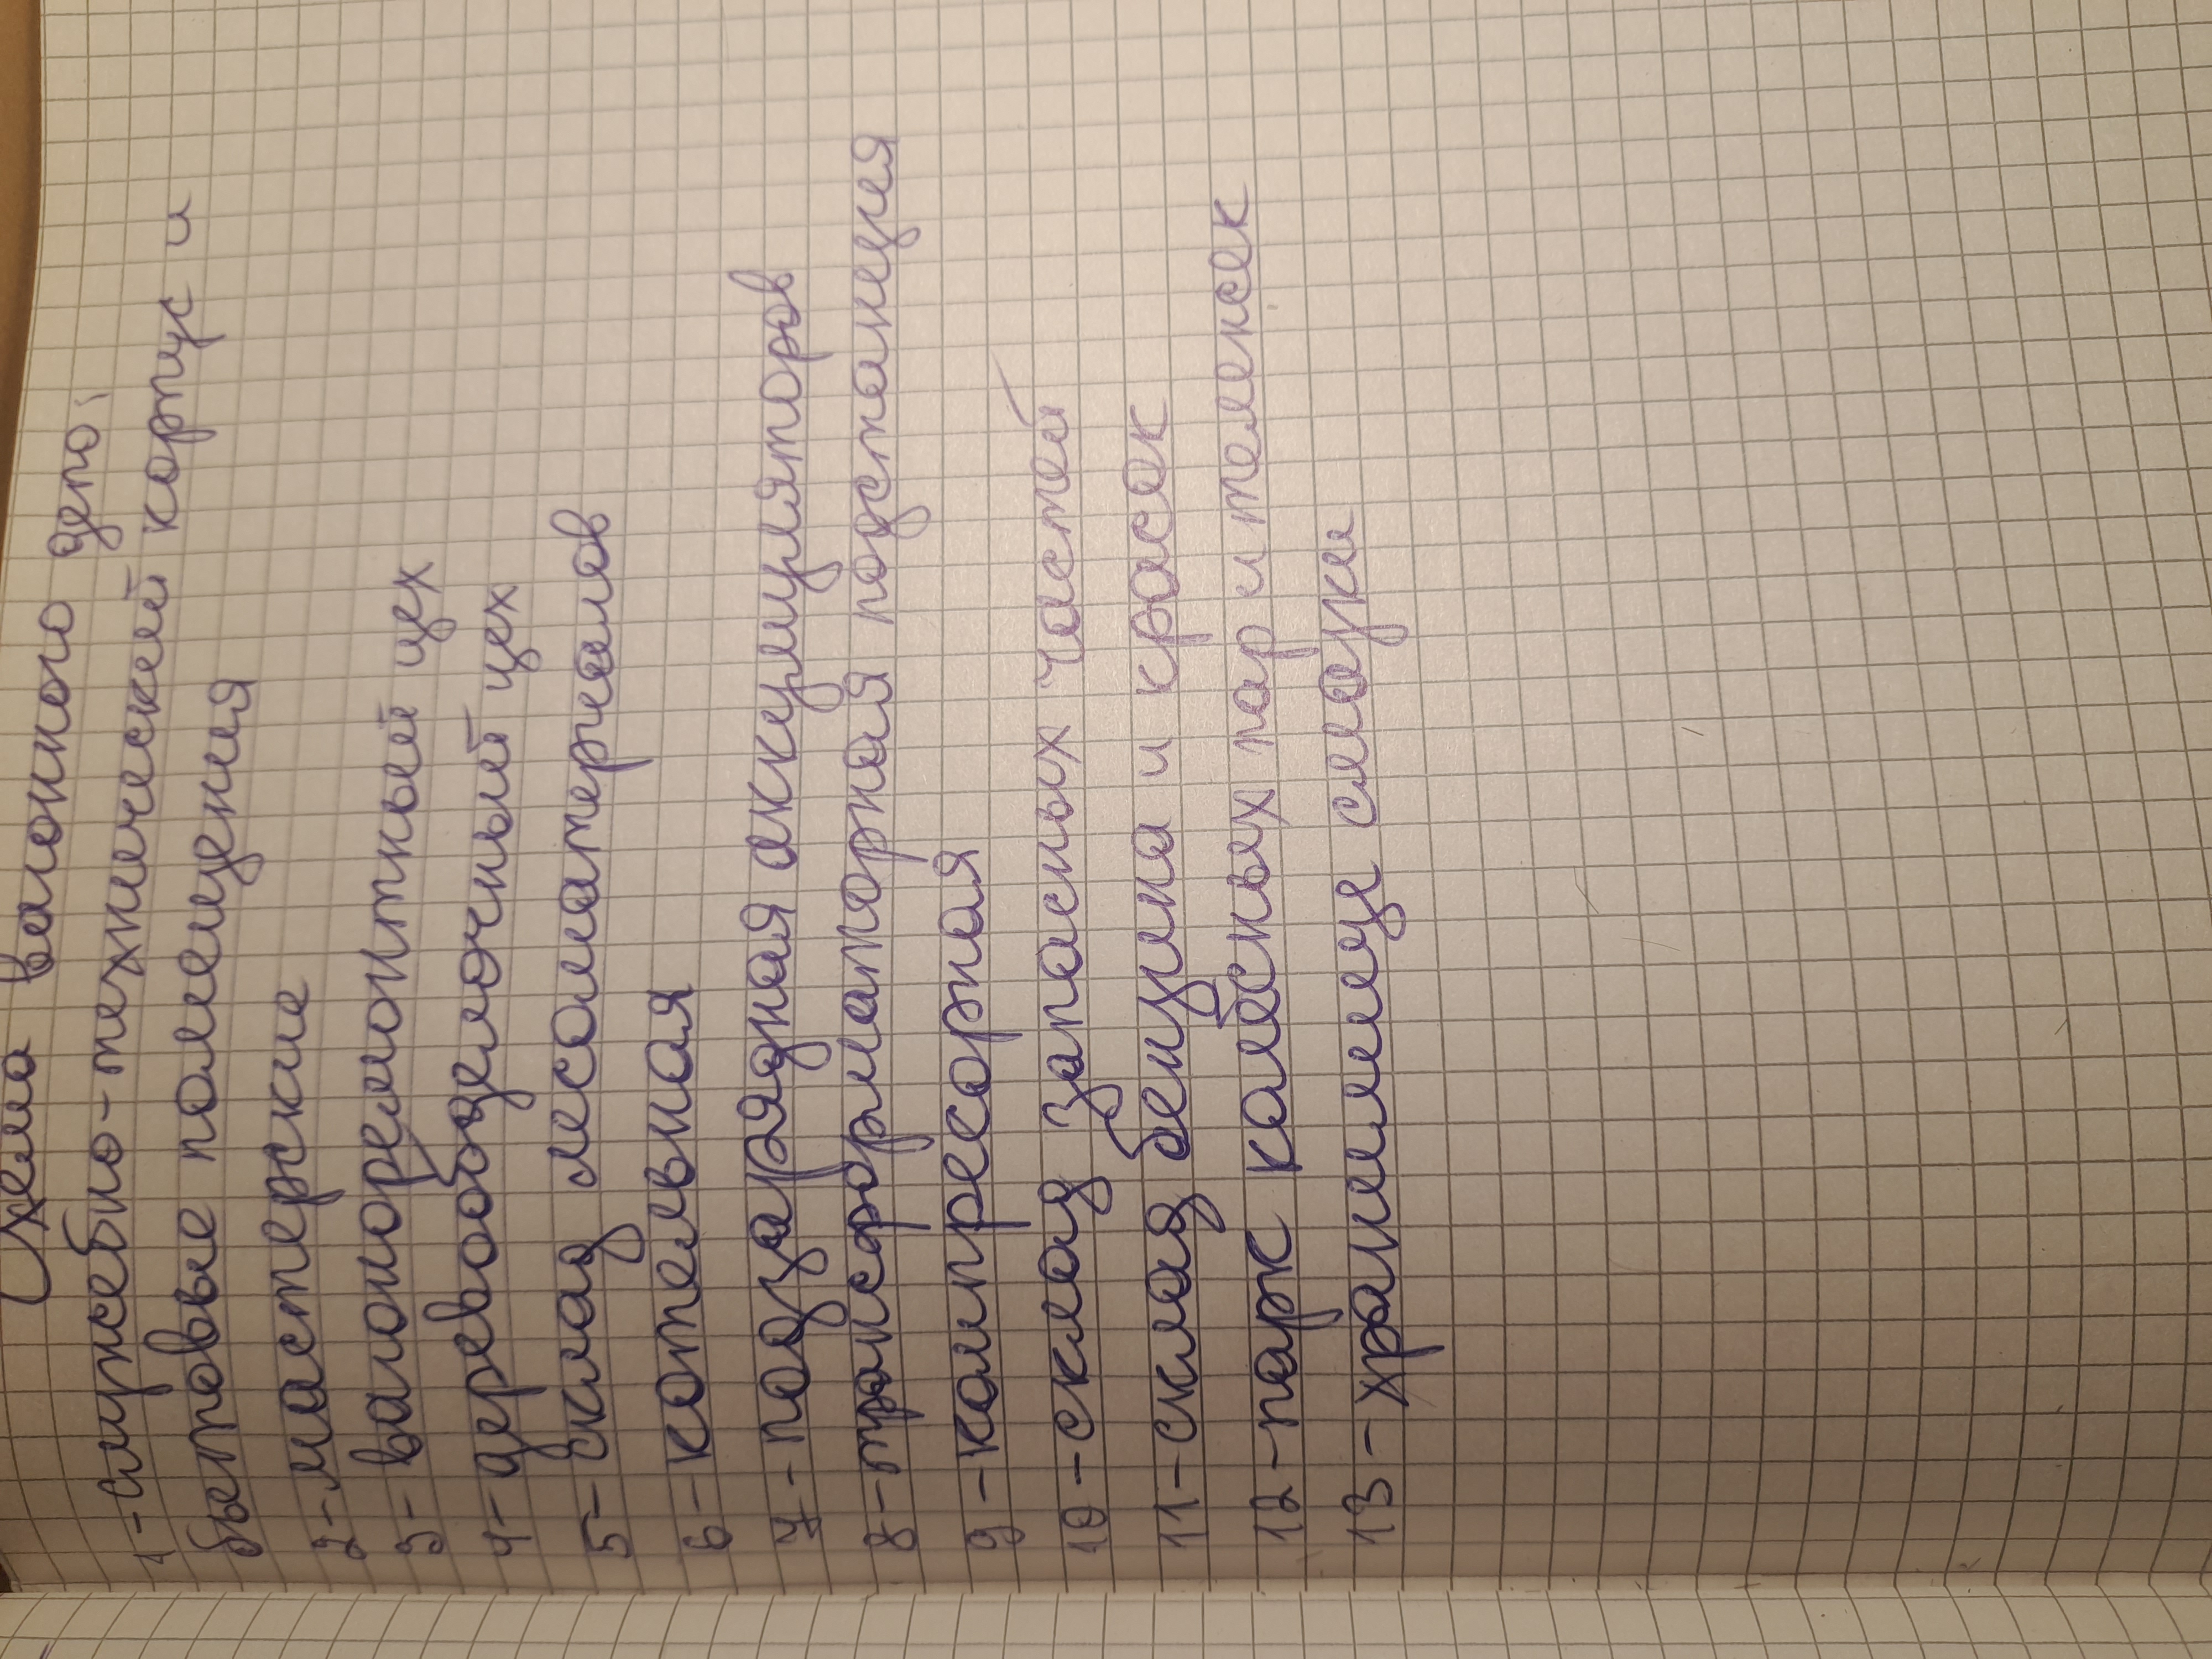 Схема вагонного депо:
1-служебно-технический корпус и
бытовые помещения
2-мастерские
3-вагоноремонтный цех
4-деревообделочный цех
5-склад лесоматериалов
6-котельная
7-подзарядная аккумуляторов
8-трансформаторная подстанция
9-компресорная
10-склад запасных частей
11-склад бензина и красок
12-парк колёсных пар и тележек
13-хранилище смазки